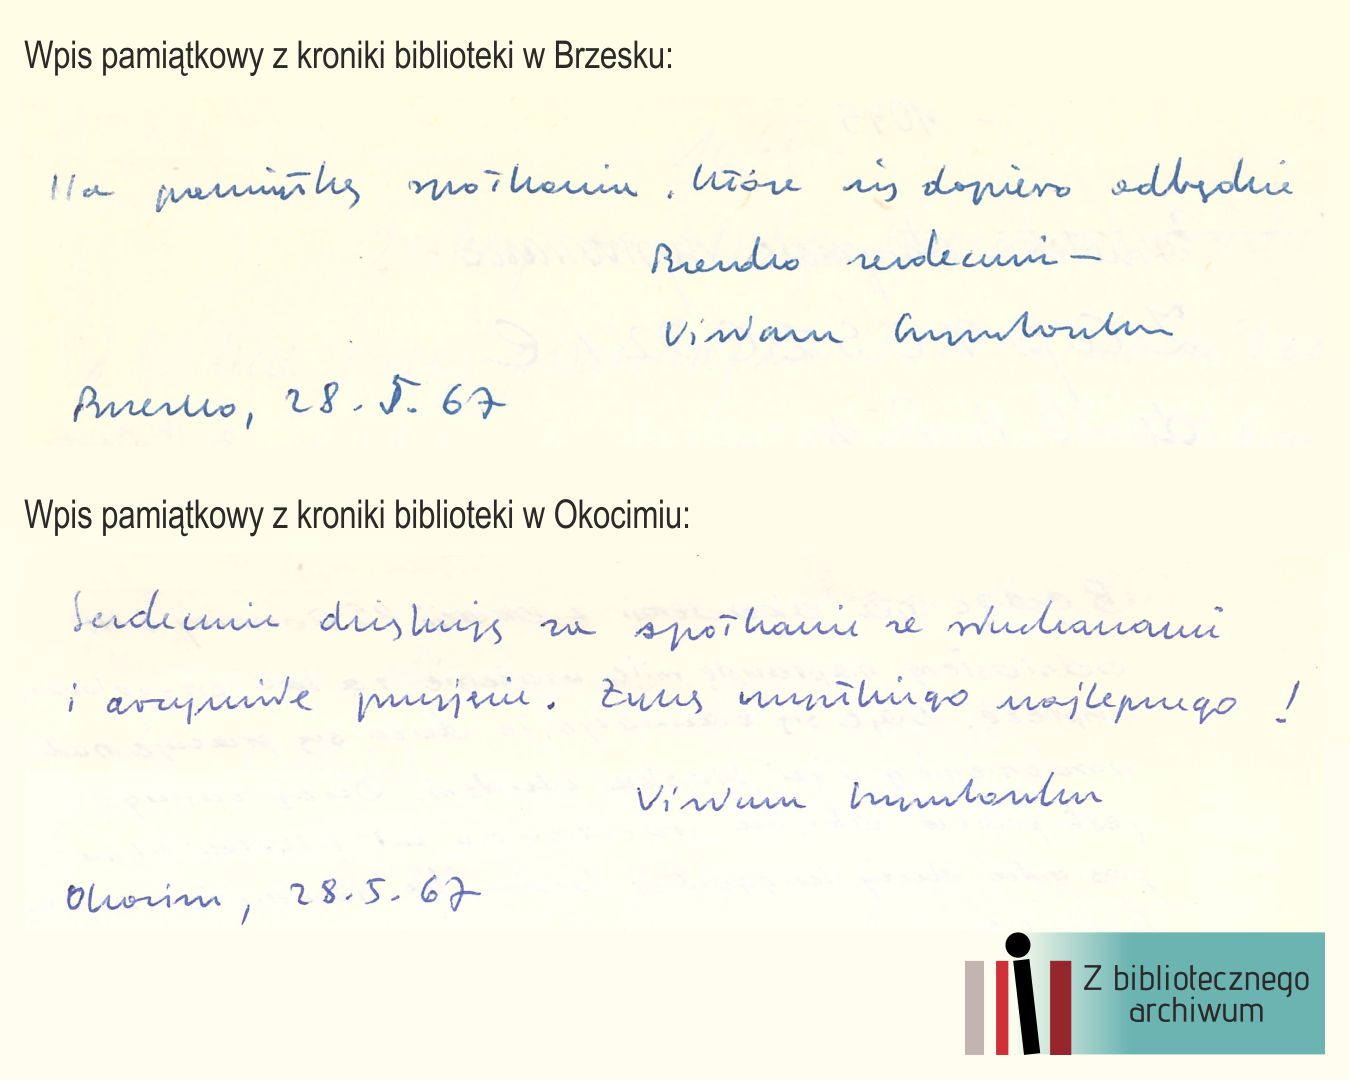 Wpis pamiątkowy z kroniki biblioteki w Brzesku:
Na pamiątkę spotkania, które się dopiero odbędzie
Bardzo serdecznie –
Wisława Szymborska
Brzesko, 28. V. 67
Wpis pamiątkowy z kroniki biblioteki w Okocimiu:
Serdecznie dziękuję za spotkanie ze słuchaczami
i oczywiście przyjęcie. Życzę wszystkiego najlepszego !
Wisława Szymborska
Okocim, 28.5.67
Z bibliotecznego
archiwum